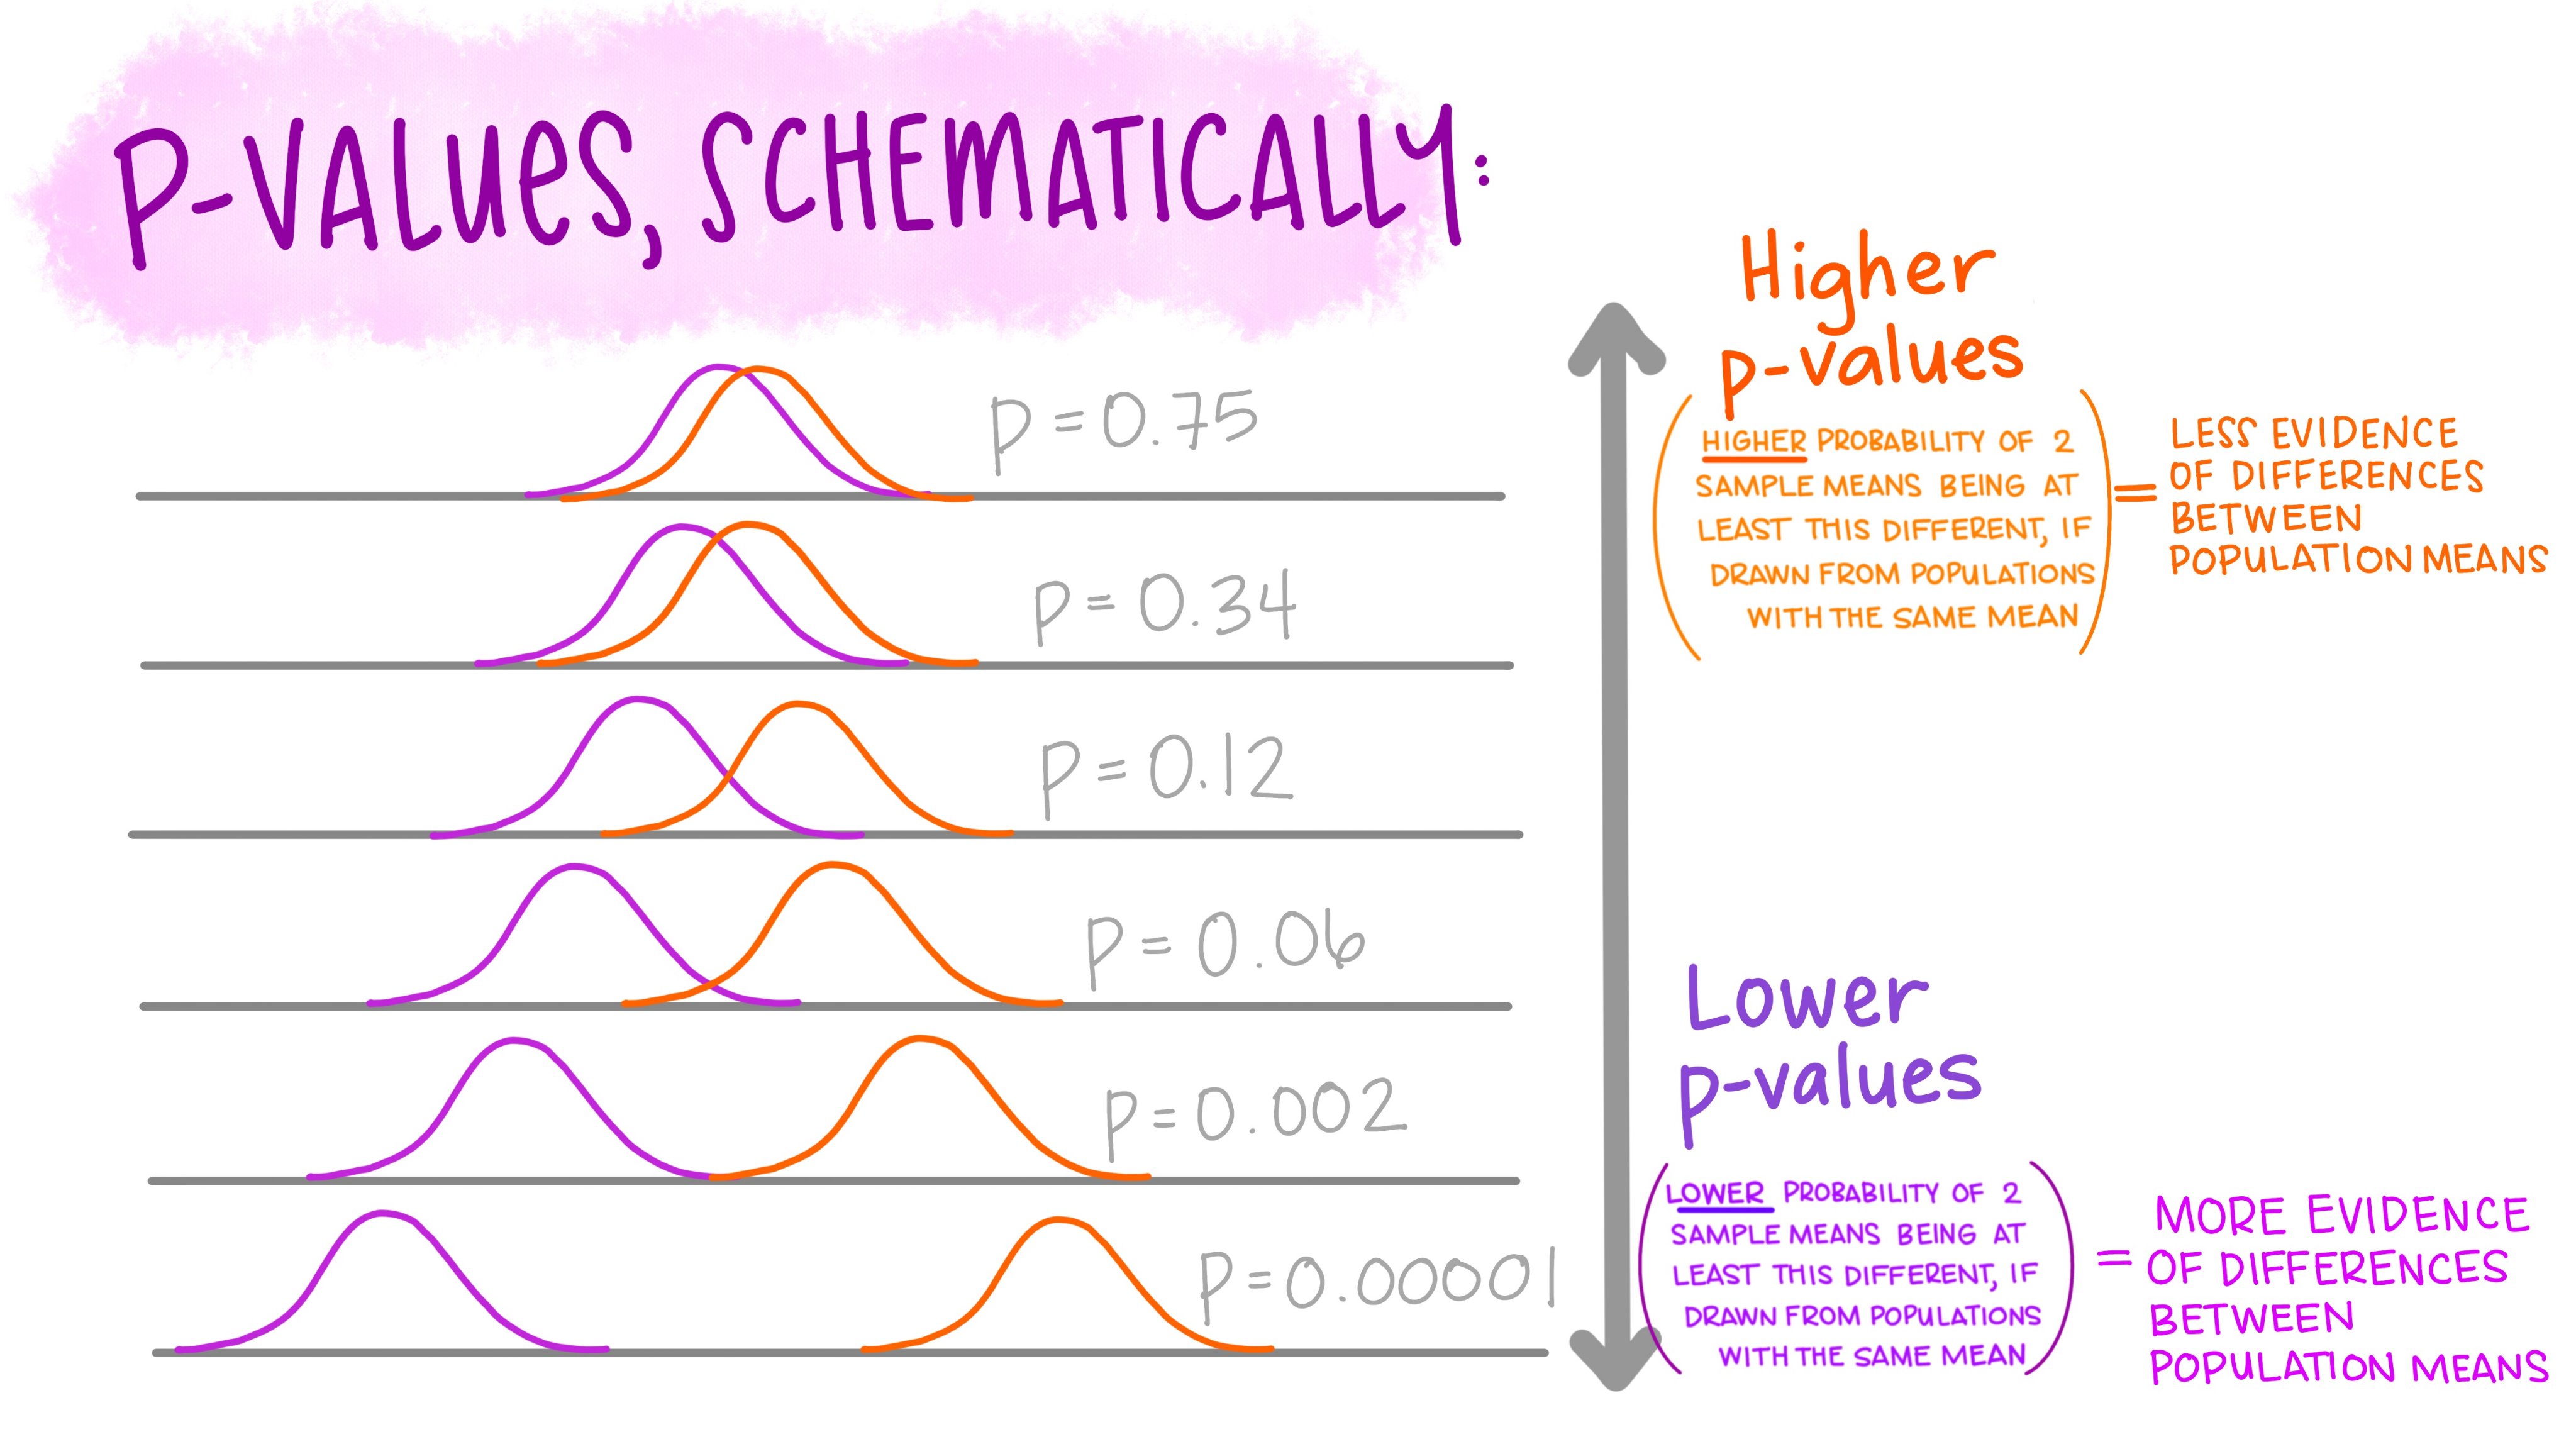 P-VALUES, SCHEMATICALLY:
p = 0.75
p = 0.34
p = 0.12
p = 0.06
p = 0.002
p = 0.00001
Higher
p-values
(HIGHER PROBABILITY OF 2
SAMPLE MEANS BEING AT
LEAST THIS DIFFERENT, IF
DRAWN FROM POPULATIONS
WITH THE SAME MEAN)
=
LESS EVIDENCE
OF DIFFERENCES
BETWEEN
POPULATION MEANS
Lower
p-values
(LOWER PROBABILITY OF 2
SAMPLE MEANS BEING AT
LEAST THIS DIFFERENT, IF
DRAWN FROM POPULATIONS
WITH THE SAME MEAN)
=
MORE EVIDENCE
OF DIFFERENCES
BETWEEN
POPULATION MEANS